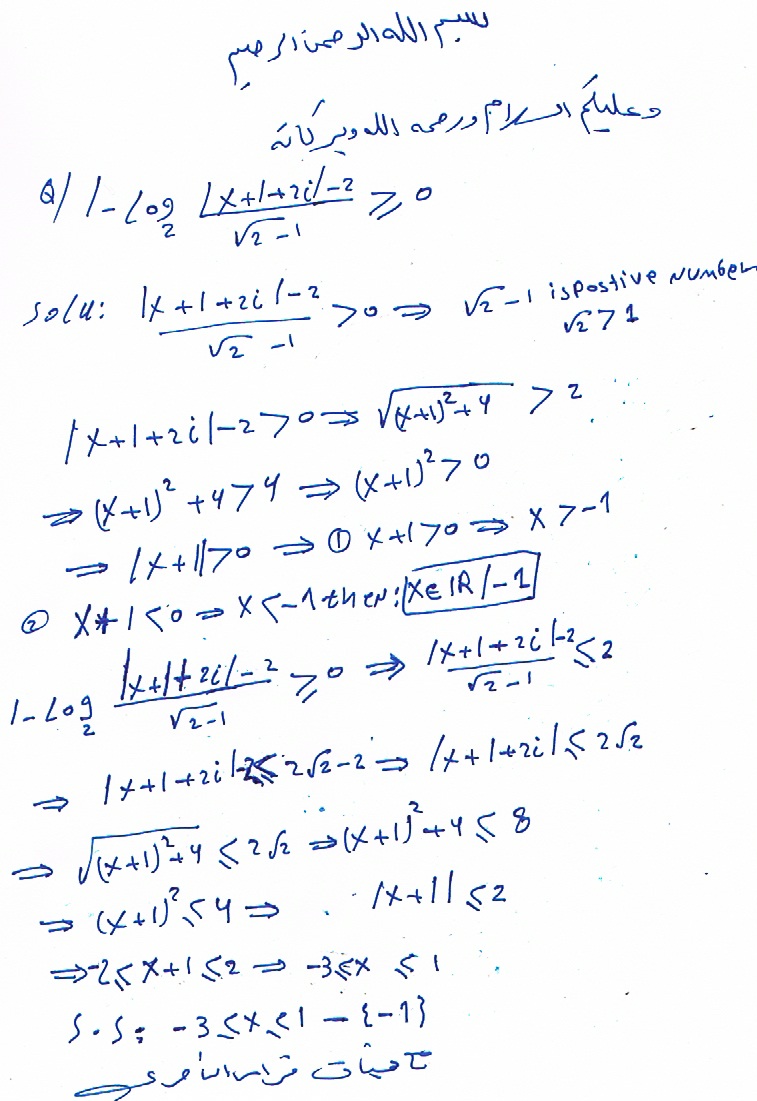 بسم الله الرحمن الرحيم
وعليكم السلام ورحمه الله وبركاته
Q/ 1-Log₂ (|x+1+2i|-2)/(√2-1) ≥ 0
Solu: (|x+1+2i|-2)/(√2-1) >0 ⇒ √2-1 is Postive Number
√2 > 1
|x+1+2i|-2>0 ⇒ √((x+1)²+4) > 2
⇒ (x+1)²+4>4 ⇒ (x+1)²>0
⇒ |x+1|>0 ⇒ ① x+1>0 ⇒ x>-1
② x+1<0 ⇒ x<-1 then: x∈IR/-1
1-Log₂ (|x+1+2i|-2)/(√2-1) ≥ 0 ⇒ (|x+1+2i|-2)/(√2-1) ≤ 2
⇒ |x+1+2i|-2 ≤ 2√2-2 ⇒ |x+1+2i| ≤ 2√2
⇒ √((x+1)²+4) ≤ 2√2 ⇒ (x+1)²+4 ≤ 8
⇒ (x+1)² ≤ 4 ⇒ |x+1| ≤ 2
⇒ -2 ≤ x+1 ≤ 2 ⇒ -3 ≤ x ≤ 1
S.S: -3 ≤ x ≤ 1 - {-1}
تحيات